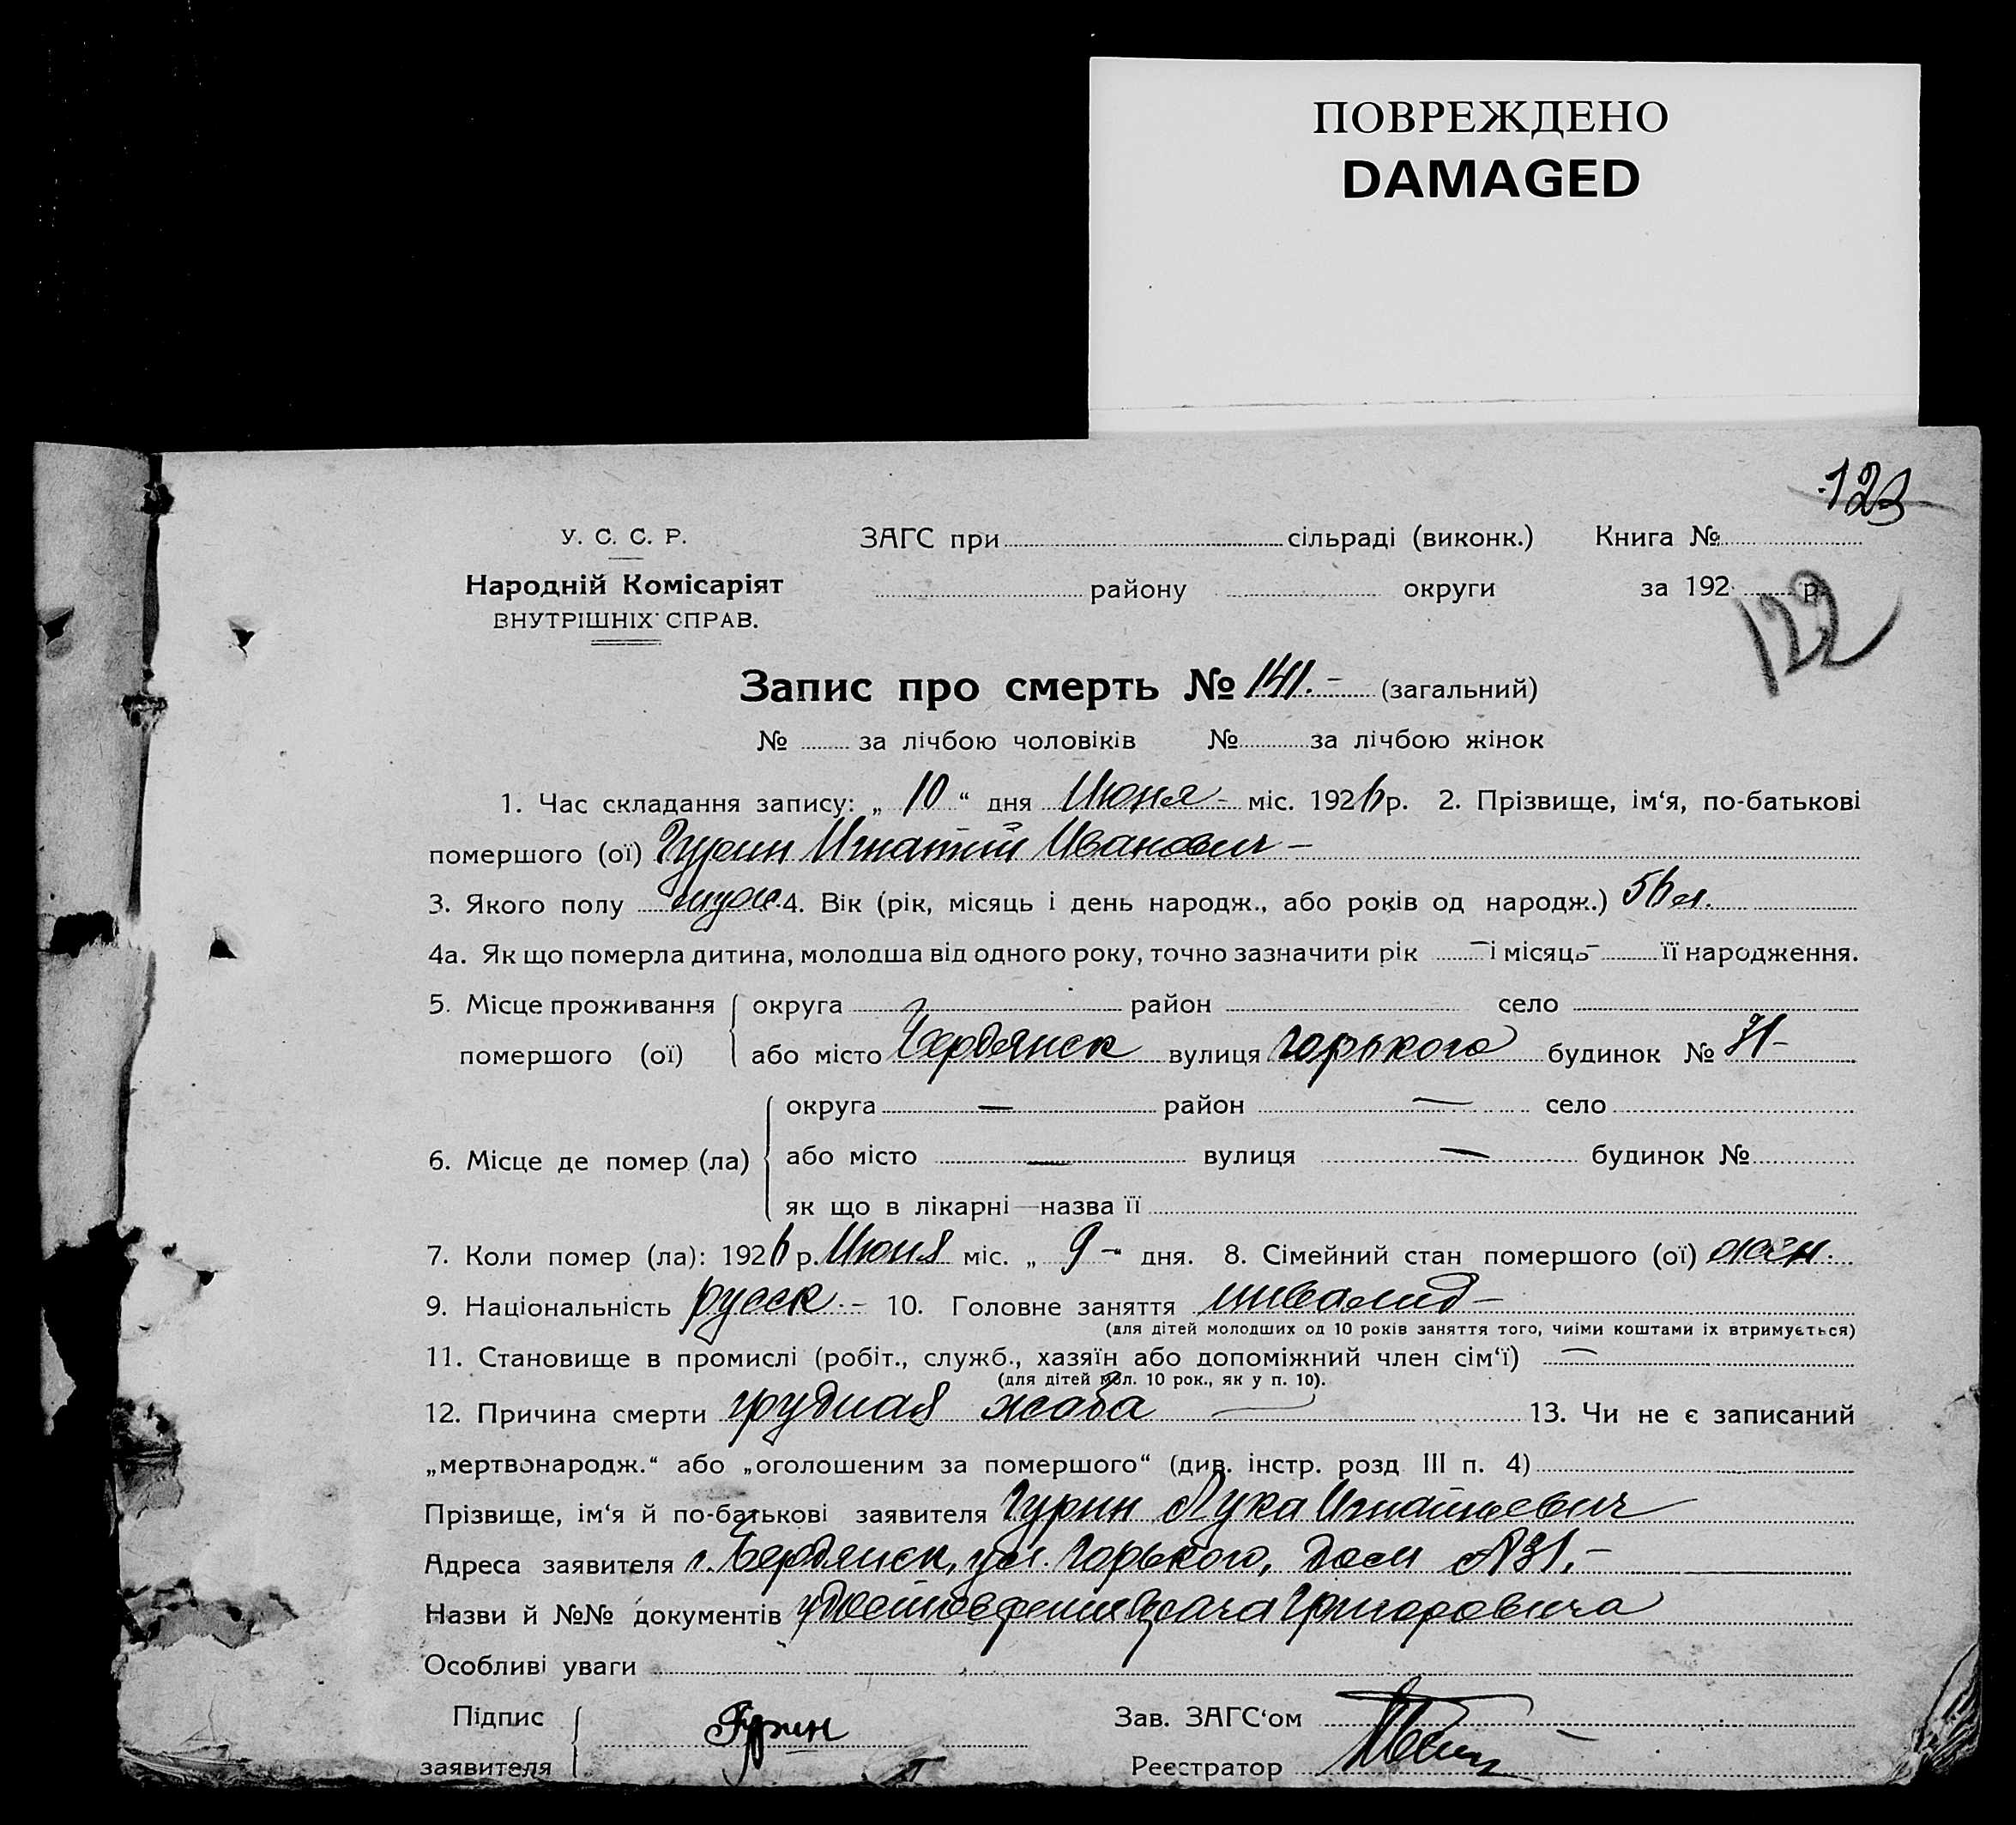 ПОВРЕЖДЕНО
DAMAGED
123
У. С. С. Р. ЗАГС при сільраді (виконк.) Книга №
Народній Комісаріят району округи за 192 р.
ВНУТРІШНІХ СПРАВ.
122
Запис про смерть № 141.- (загальний)
№ за лічбою чоловіків № за лічбою жінок
1. Час складання запису: „ 10 “ дня Июня - міс. 1926 р. 2. Прізвище, ім‘я, по-батькові
помершого (ої) Гурин Игнатий Иванович -
3. Якого полу муж. 4. Вік (рік, місяць і день народж., або років од народж.) 56 л.
4а. Як що померла дитина, молодша від одного року, точно зазначити рік — і місяць — її народження.
5. Місце проживання округа район село
помершого (ої) або місто Бердянск вулиця Горького будинок № 31-
округа — район — село
6. Місце де помер (ла) або місто — вулиця — будинок №
як що в лікарні—назва її
7. Коли помер (ла): 1926 р. Июня міс. „ 9 - “ дня. 8. Сімейний стан помершого (ої) жен.
9. Національність русск. - 10. Головне заняття инвалид -
(для дітей молодших од 10 років заняття того, чиїми коштами їх втримується)
11. Становище в промислі (робіт., служб., хазяїн або допоміжний член сім‘ї) —
(для дітей мол. 10 рок., як у п. 10).
12. Причина смерти грудная жаба 13. Чи не є записаний
„мертвонародж.“ або „оголошеним за помершого“ (див. інстр. розд III п. 4)
Прізвище, ім‘я й по-батькові заявителя Гурин Лука Игнатиевич
Адреса заявителя г. Бердянск, ул. Горького, дом №31.-
Назви й №№ документів врача Григоровича
Особливі уваги
Підпис Гурин Зав. ЗАГС‘ом
заявителя Реєстратор